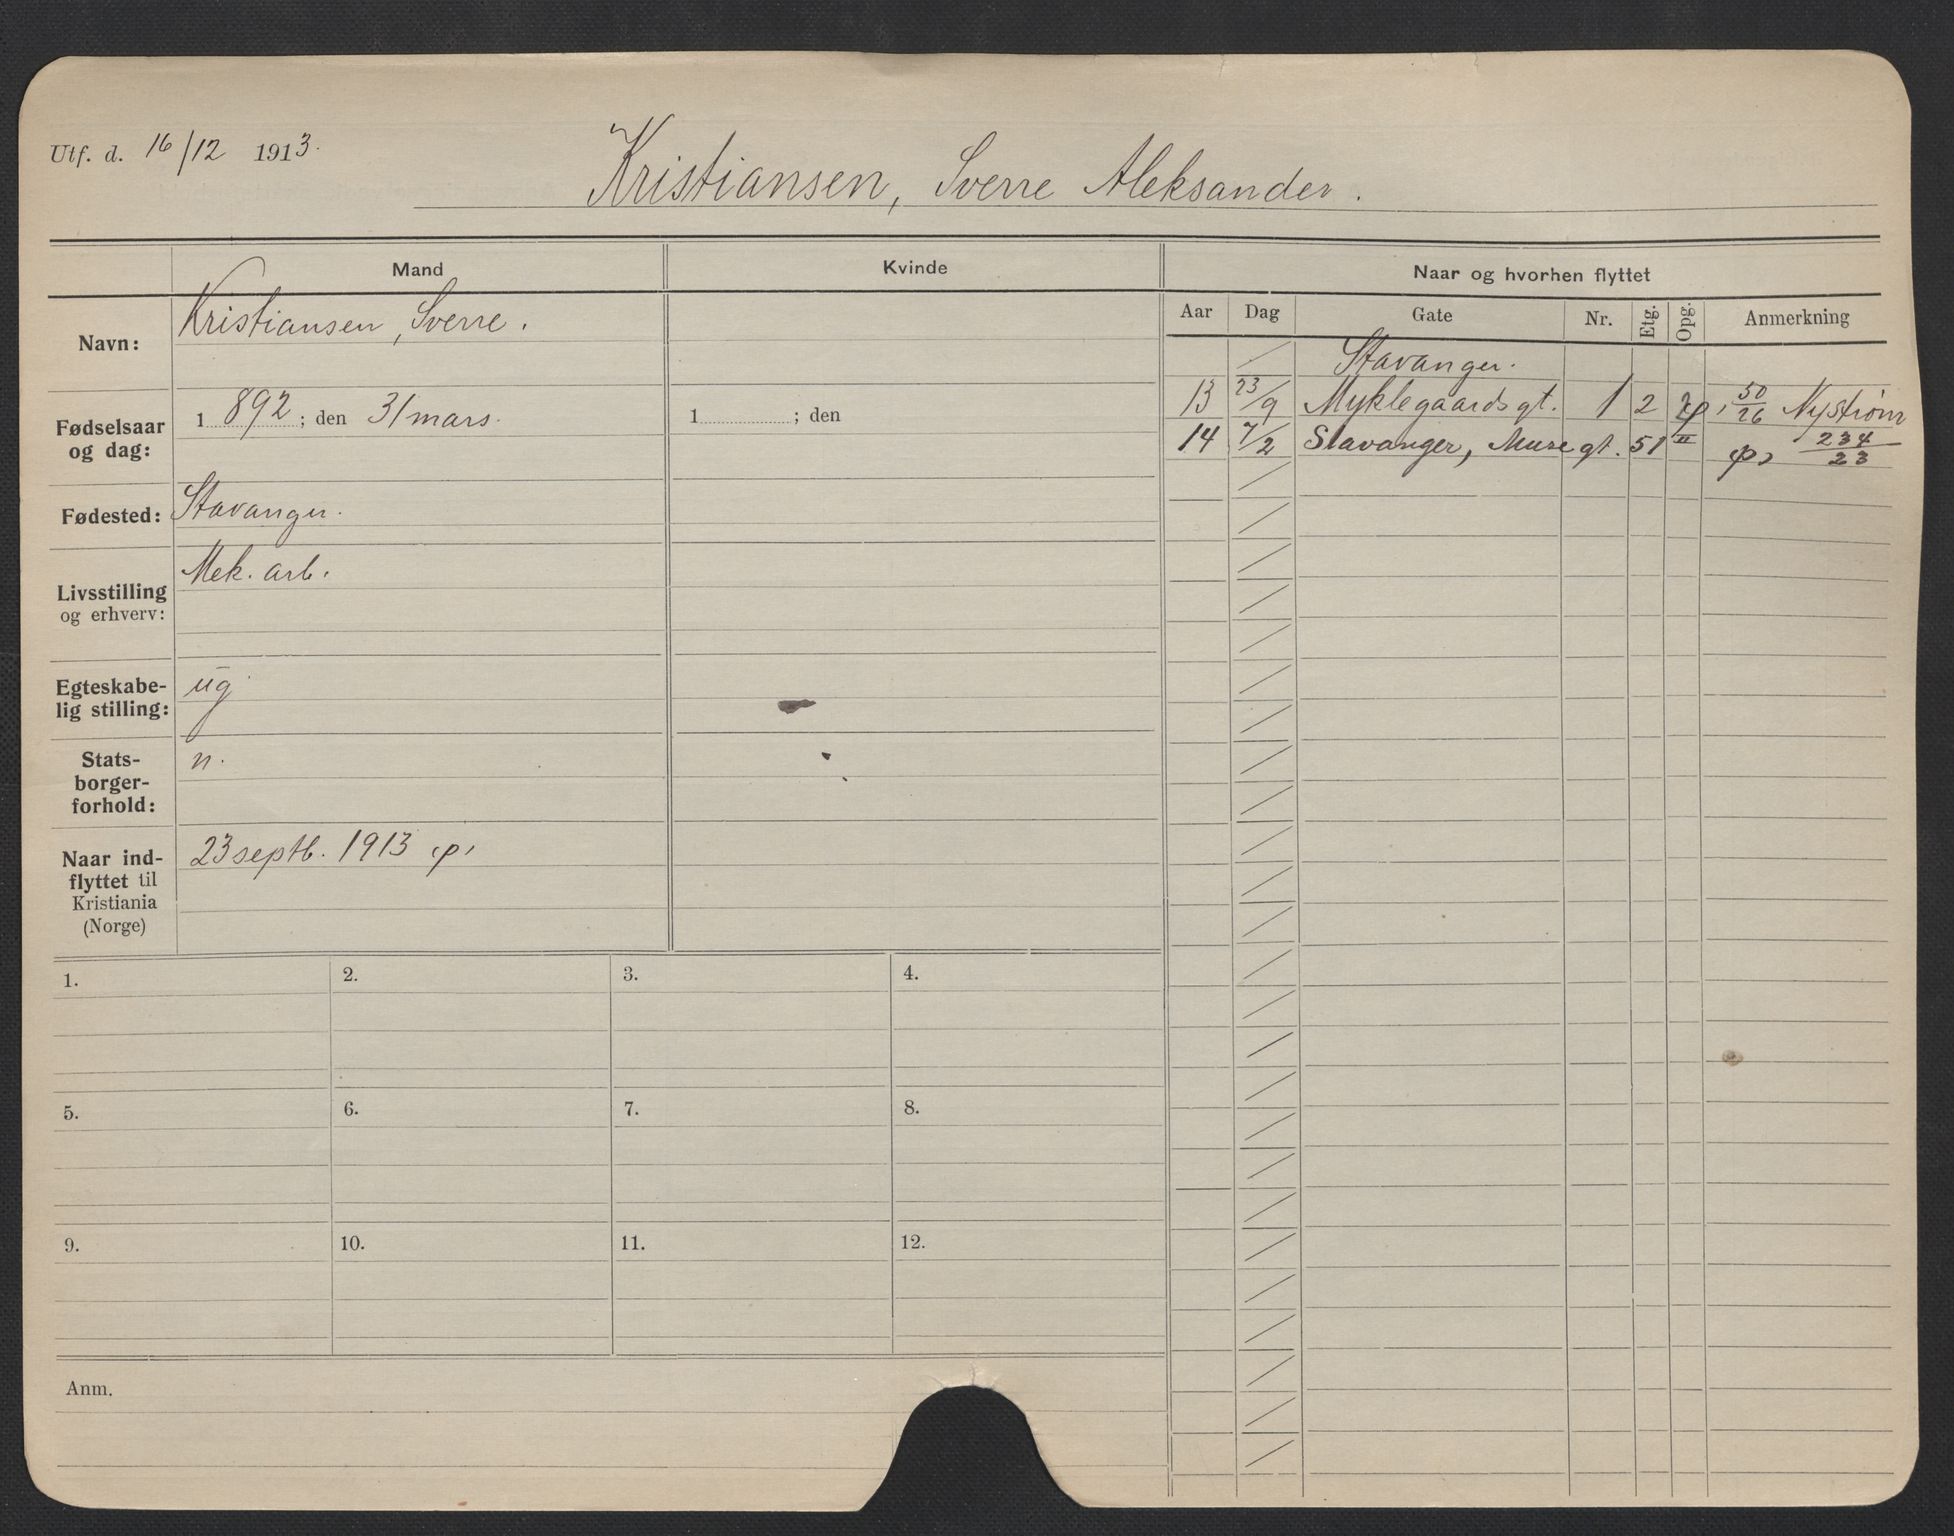 Utf. d. 16/12 1913.
Kristiansen, Sverre Aleksander.
Mand
Kvinde
Naar og hvorhen flyttet
Navn:
Kristiansen, Sverre.
Aar Dag Gate Nr. Etg. Opg. Anmerkning
Stavanger.
13 23/9 Myklegaards gt. 1 2 50/26 Nystrøm
14 7/2 Stavanger, Muse gt. 51 II 234/23
Fødselsaar
og dag:
1892; den 31 mars.
1 ; den
Fødested:
Stavanger.
Livsstilling
og erhverv:
Mek. arb.
Egteskabe-
lig stilling:
ug
Stats-
borger-
forhold:
n.
Naar ind-
flyttet til
Kristiania
(Norge)
23 septb. 1913
1. 2. 3. 4.
5. 6. 7. 8.
9. 10. 11. 12.
Anm.